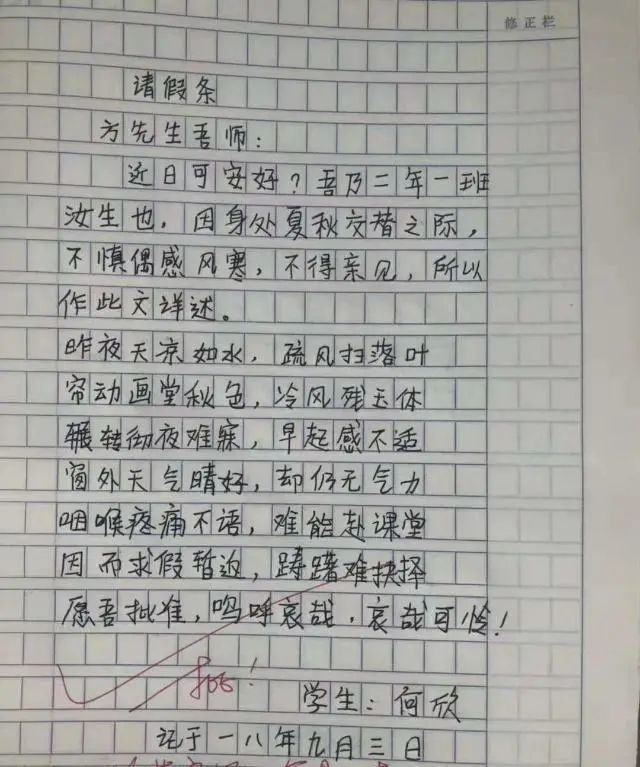 修正栏
请假条
方先生吾师：
近日可安好？吾乃二年一班
汝生也，因身处夏秋交替之际，
不慎偶感风寒，不得亲见，所以
作此文详述。
昨夜天凉如水，疏风扫落叶
帘动画堂秋色，冷风残玉体
辗转彻夜难寐，早起感不适
窗外天气晴好，却仍无气力
咽喉疼痛不语，难能赴课堂
因而求假暂返，踌躇难抉择
愿吾批准，呜呼哀哉，哀哉可怜！
学生：何欣
记于一八年九月三日